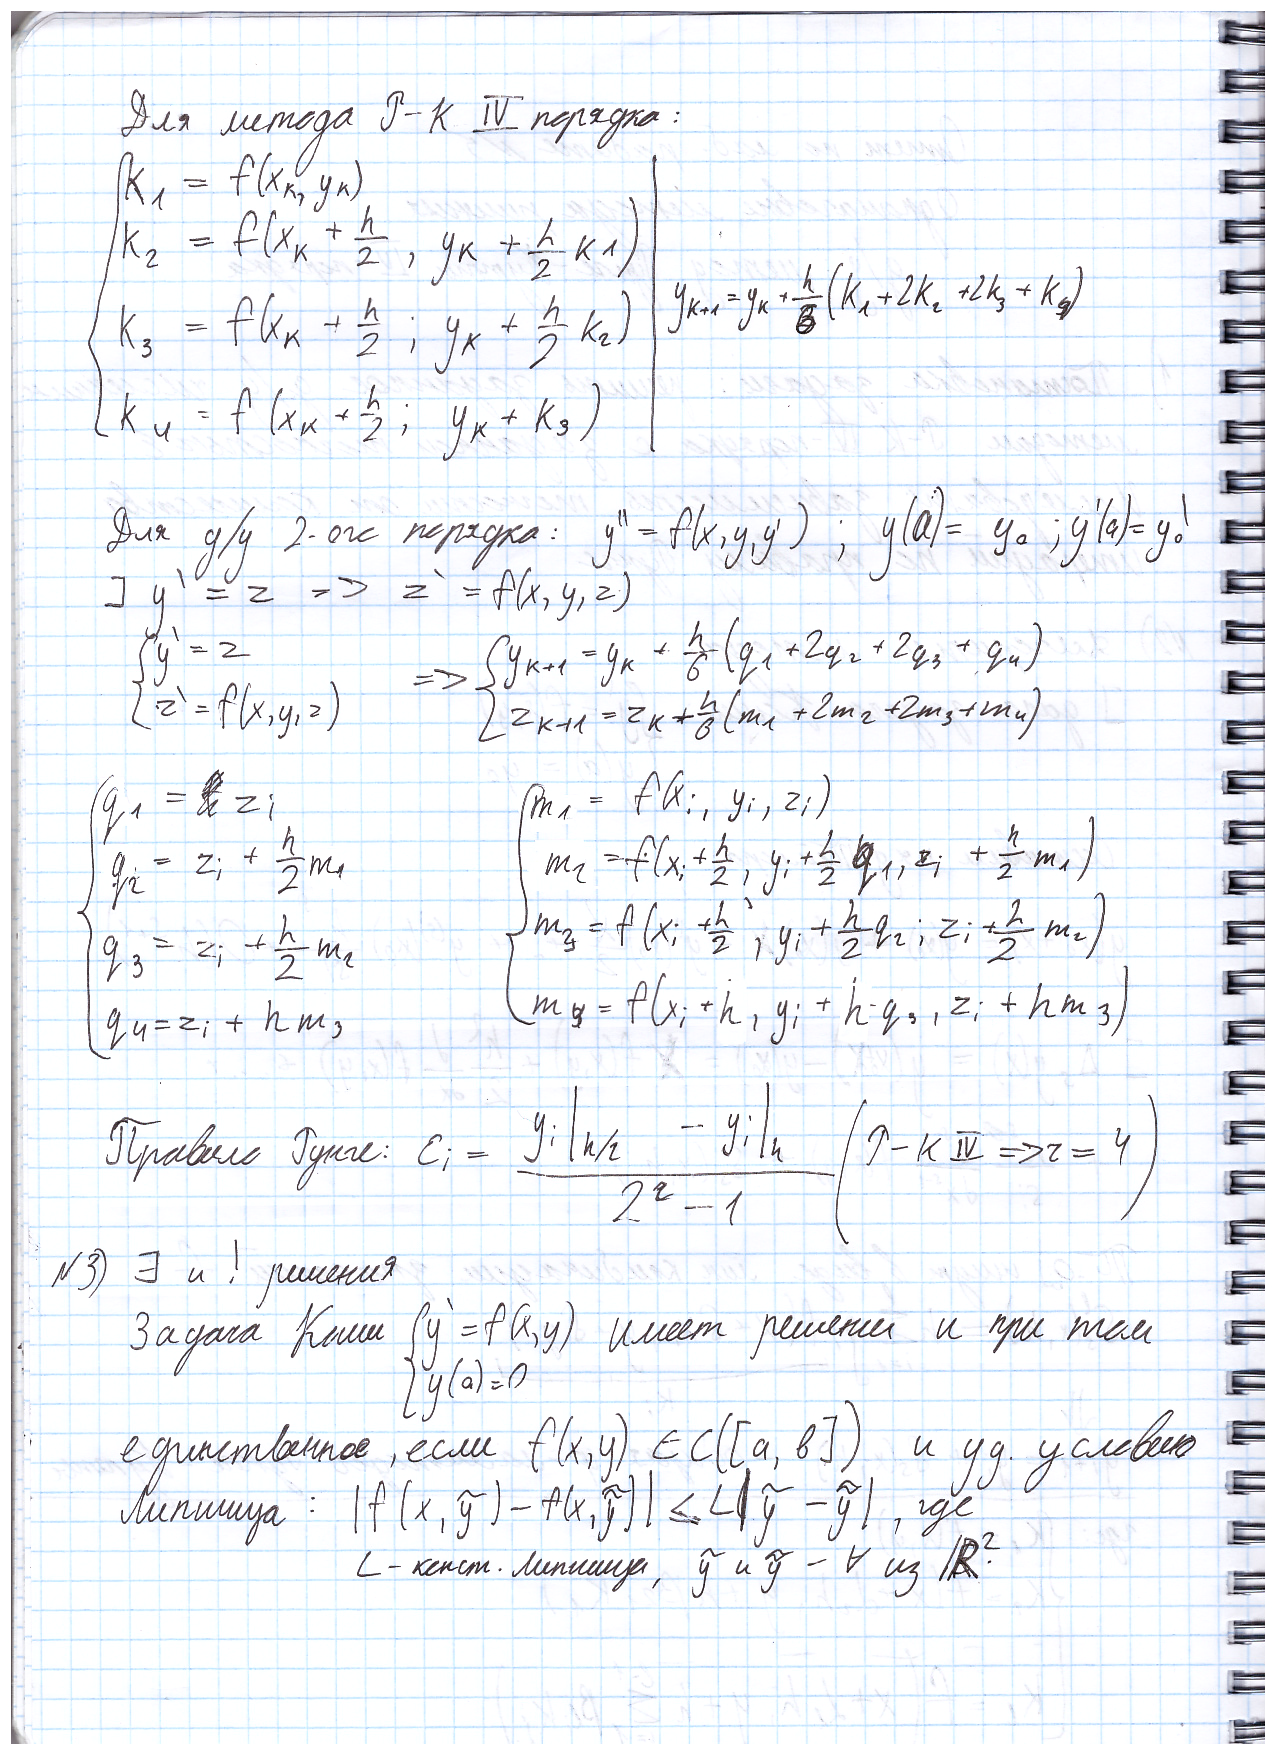 Для метода Р-К IV порядка:
k1 = f(xк, yк)
k2 = f(xк + h/2, yк + h/2 k1)
k3 = f(xк + h/2; yк + h/2 k2)
k4 = f(xк + h/2; yк + k3)
yк+1 = yк + h/6 (k1 + 2k2 + 2k3 + k4)
Для д/у 2-ого порядка: y'' = f(x, y, y') ; y(a) = y0 ; y'(a) = y0'
∃ y' = z => z' = f(x, y, z)
{ y' = z
{ z' = f(x, y, z)
=> { yк+1 = yк + h/6 (q1 + 2q2 + 2q3 + q4)
{ zк+1 = zк + h/6 (m1 + 2m2 + 2m3 + m4)
q1 = zi
q2 = zi + h/2 m1
q3 = zi + h/2 m2
q4 = zi + h m3
m1 = f(xi, yi, zi)
m2 = f(xi + h/2, yi + h/2 q1, zi + h/2 m1)
m3 = f(xi + h/2, yi + h/2 q2; zi + h/2 m2)
m4 = f(xi + h, yi + h·q3, zi + h m3)
Правило Рунге: Ɛi = (yi|h/2 − yi|h) / (2^r − 1) (Р-К IV => r = 4)
N3) ∃ и ! решения
Задача Коши { y' = f(x, y) имеет решение и при том
{ y(a) = 0
единственное, если f(x, y) ∈ C([a, в]) и уд. условию
Липшица: |f(x, ỹ) − f(x, ỹ̃)| ≤ L|ỹ − ỹ̃|, где
L – конст. Липшица, ỹ и ỹ̃ – ∀ из R².